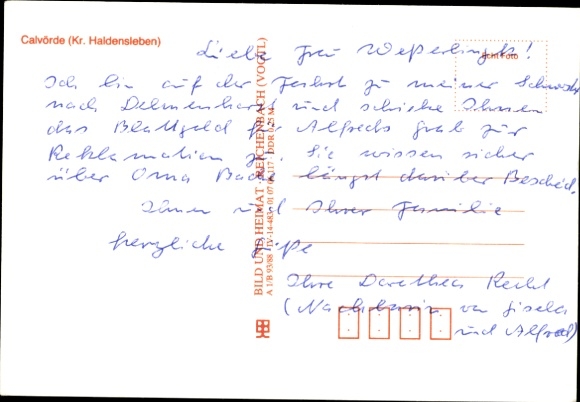 Calvörde (Kr. Haldensleben)
Echt Foto
Liebe Frau Weßerlingk!
Ich bin auf der Fahrt zu meiner Schwester
nach Delmenhorst und schicke Ihnen
das Blattgeld für Alfreds grab zur
Reklamation zu. Sie wissen sicher
über Oma Bade längst darüber Bescheid.
Ihnen und Ihrer Familie
herzliche Grüße
Ihre Dorothea
(Nachbarin von Gisela
und Alfred)
BILD UND HEIMAT REICHENBACH (VOGTL)
A 1/B 93/88 IV-14-483 01 07 04 117 DDR 0,25 M